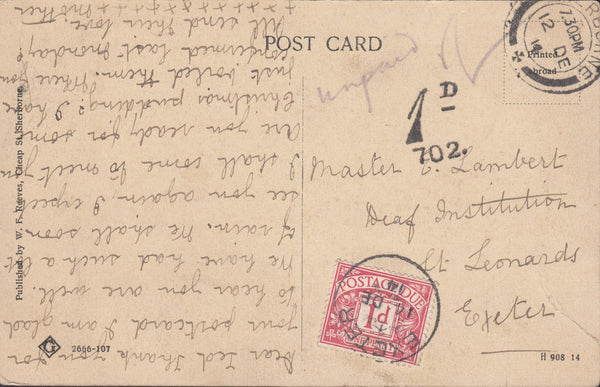 POST CARD
Printed
abroad
SHERBORNE
7.30PM
12 DE
14
unpaid
1D
702.
Master E. Lambert
Deaf Institution
St Leonards
Exeter
POSTAGE DUE
1D
EXETER
14 DE
14
Dear Ted Thank you for
your postcard I am glad
to hear you are well.
We have had such a lot
of rain. We shall soon
see you again. I expect
I shall come to meet you
Are you ready for some
Christmas pudding? I have
just boiled them. Whee you
confirmed last Monday?
All send their love.
++++++ Mother
Published by W. F. Reeves, Cheap St, Sherborne.
G
2666-107
H 908 14